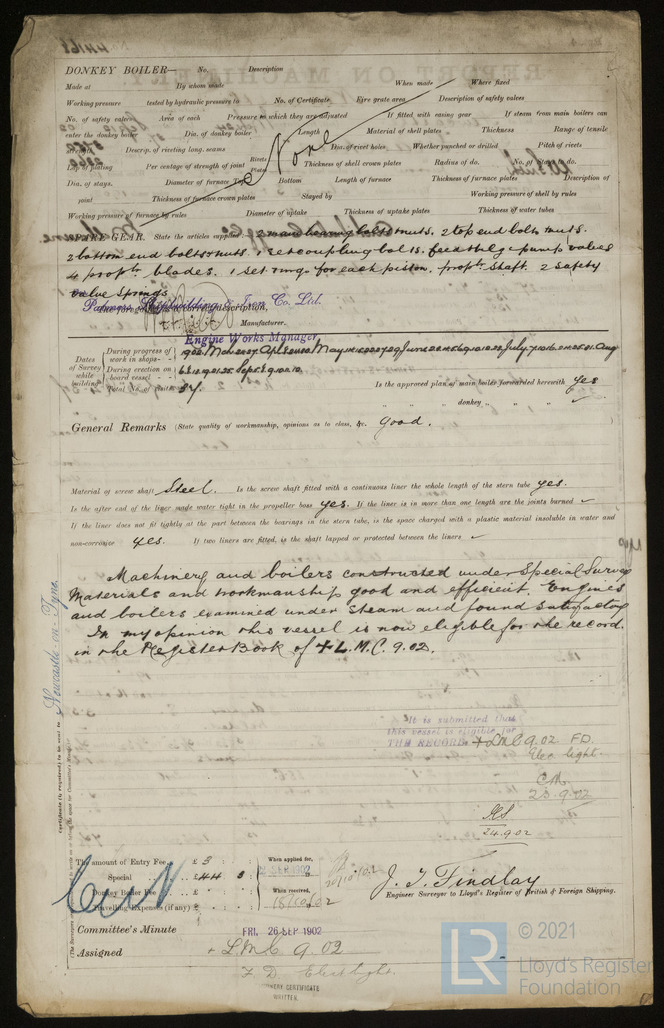 DONKEY BOILER— No. Description
Made at By whom made When made Where fixed
Working pressure tested by hydraulic pressure to No. of Certificate Fire grate area Description of safety valves
No. of safety valves Area of each Pressure to which they are adjusted If fitted with easing gear If steam from main boilers can
enter the donkey boiler Dia. of donkey boiler Length Material of shell plates Thickness Range of tensile
None
Descrip. of riveting long. seams Dia. of rivet holes Whether punched or drilled Pitch of rivets
Lap of plating Per centage of strength of joint Rivets Plates Thickness of shell crown plates Radius of do. No. of Stays to do.
Dia. of stays. Diameter of furnace Top Bottom Length of furnace Thickness of furnace plates Description of
joint Thickness of furnace crown plates Stayed by Working pressure of shell by rules
Working pressure of furnace by rules Diameter of uptake Thickness of uptake plates Thickness of water tubes
SPARE GEAR. State the articles supplied:— 2 main bearing bolts & nuts. 2 top end bolts & nuts.
2 bottom end bolts & nuts. 1 set coupling bolts. feed & bilge pump valves
4 propr. blades. 1 set rings for each piston. propr. shaft. 2 safety
valve springs
Palmers Shipbuilding & Iron Co. Ltd.
The foregoing is a correct description,
Manufacturer.
Engine Works Manager
Dates of Survey while building
During progress of work in shops—
During erection on board vessel—
Total No. of visits 34
Is the approved plan of main boiler forwarded herewith yes
" " " donkey " " "
General Remarks (State quality of workmanship, opinions as to class, &c. Good.
Material of screw shaft Steel. Is the screw shaft fitted with a continuous liner the whole length of the stern tube yes.
Is the after end of the liner made water tight in the propeller boss yes. If the liner is in more than one length are the joints burned
If the liner does not fit tightly at the part between the bearings in the stern tube, is the space charged with a plastic material insoluble in water and
non-corrosive yes. If two liners are fitted, is the shaft lapped or protected between the liners
Machinery and boilers constructed under Special Survey
Materials and workmanship good and efficient. Engines
and boilers examined under steam and found satisfactory
In my opinion this vessel is now eligible for the record
in the Register Book of + L.M.C. 9.02.
Newcastle on Tyne.
It is submitted that
this vessel is eligible for
THE RECORD. + LMC 9.02 F.D.
Elec light.
23.9.02
24.9.02
The amount of Entry Fee £ 3 : : When applied for,
Special £ 44 :
Donkey Boiler Fee £ : : When received,
Travelling Expenses (if any) £ : : 18/10/02
20/10/02
J. T. Findlay
Engineer Surveyor to Lloyd's Register of British & Foreign Shipping.
Committee's Minute FRI. 26 SEP 1902
Assigned + LMC 9.02
F.D. Elec light.
MACHINERY CERTIFICATE
WRITTEN
LR © 2021
Lloyd's Register
Foundation